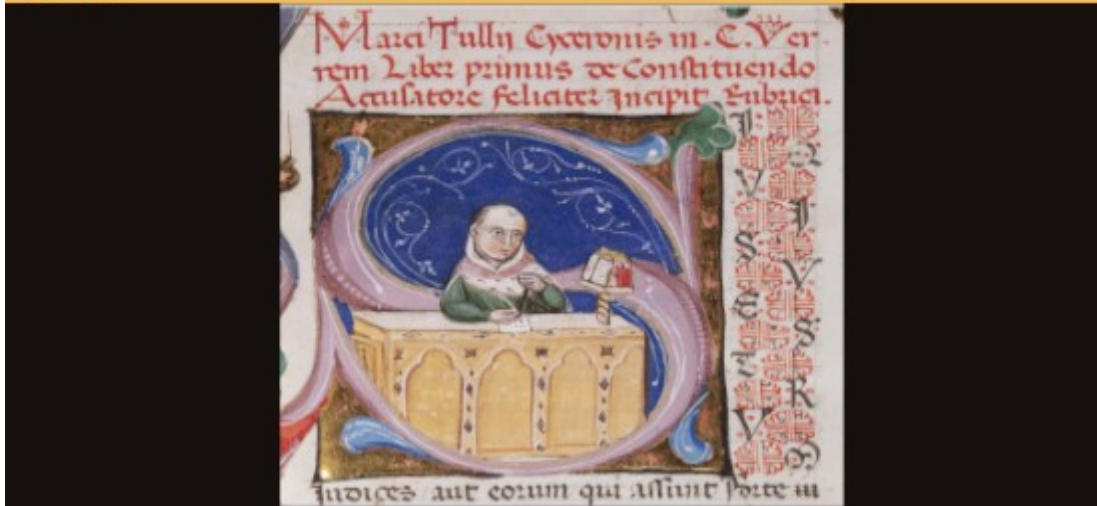 Marci Tullij Cyceronis in . C. Ver-
rem Liber primus de Constituendo
Accusatore feliciter Incipit Rubrica.
Iudices aut eorum qui assunt forte mi